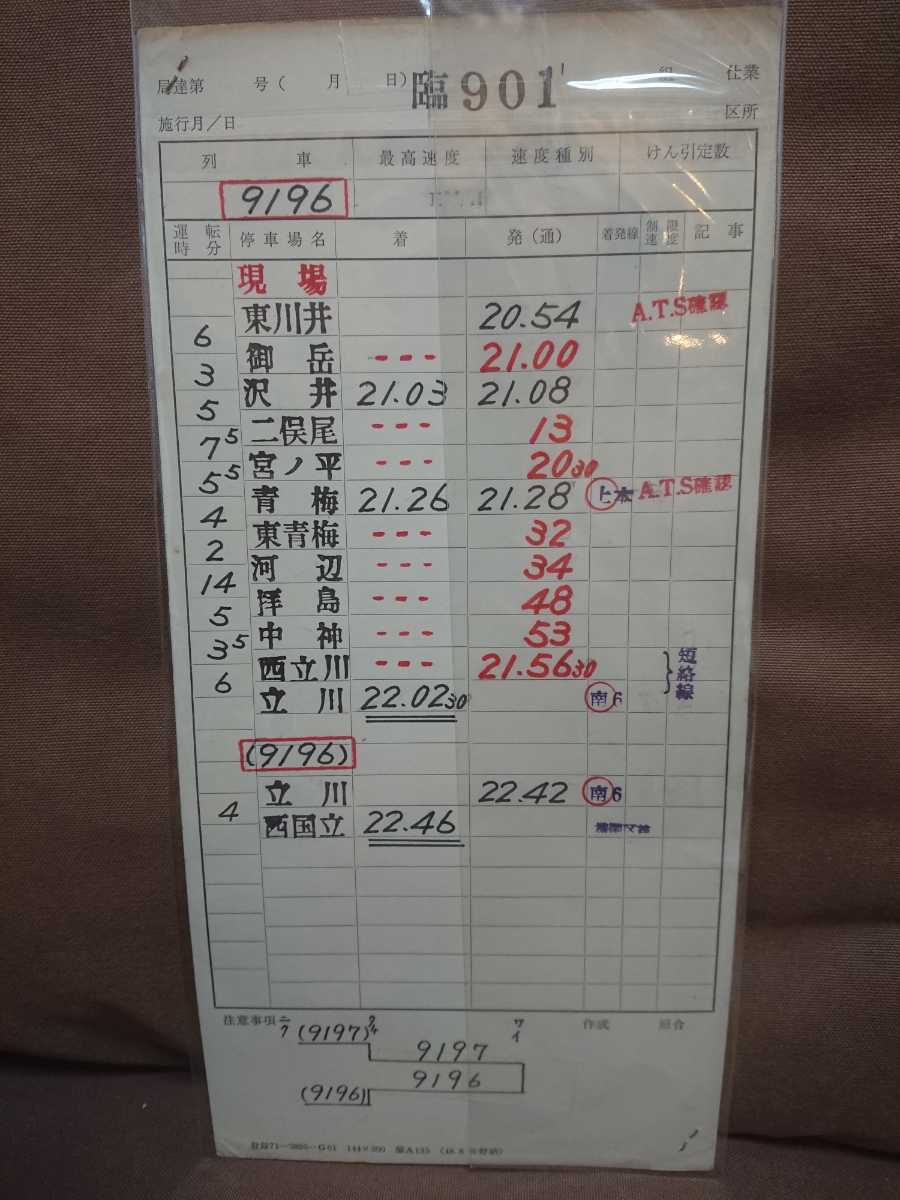 局達第 号( 月 日) 臨901 組 仕業
施行月/日 区所
列 車 最高速度 速度種別 けん引定数
9196
運転時分 停車場名 着 発(通) 着発線 制限速度 記事
現場
東川井 20.54 A.T.S確認
6
御岳 --- 21.00
3
沢井 21.03 21.08
5
二俣尾 --- 13
7 5
宮ノ平 --- 20 30
5 5
青梅 21.26 21.28 上本 A.T.S確認
4
東青梅 --- 32
2
河辺 --- 34
14
拝島 --- 48
5
中神 --- 53
3 5
西立川 --- 21.56 30 短絡線
6
立川 22.02 30 南6
(9196)
立川 22.42 南6
4
西国立 22.46
注意事項 作成 照合
(9197) 9197
9196
(9196)